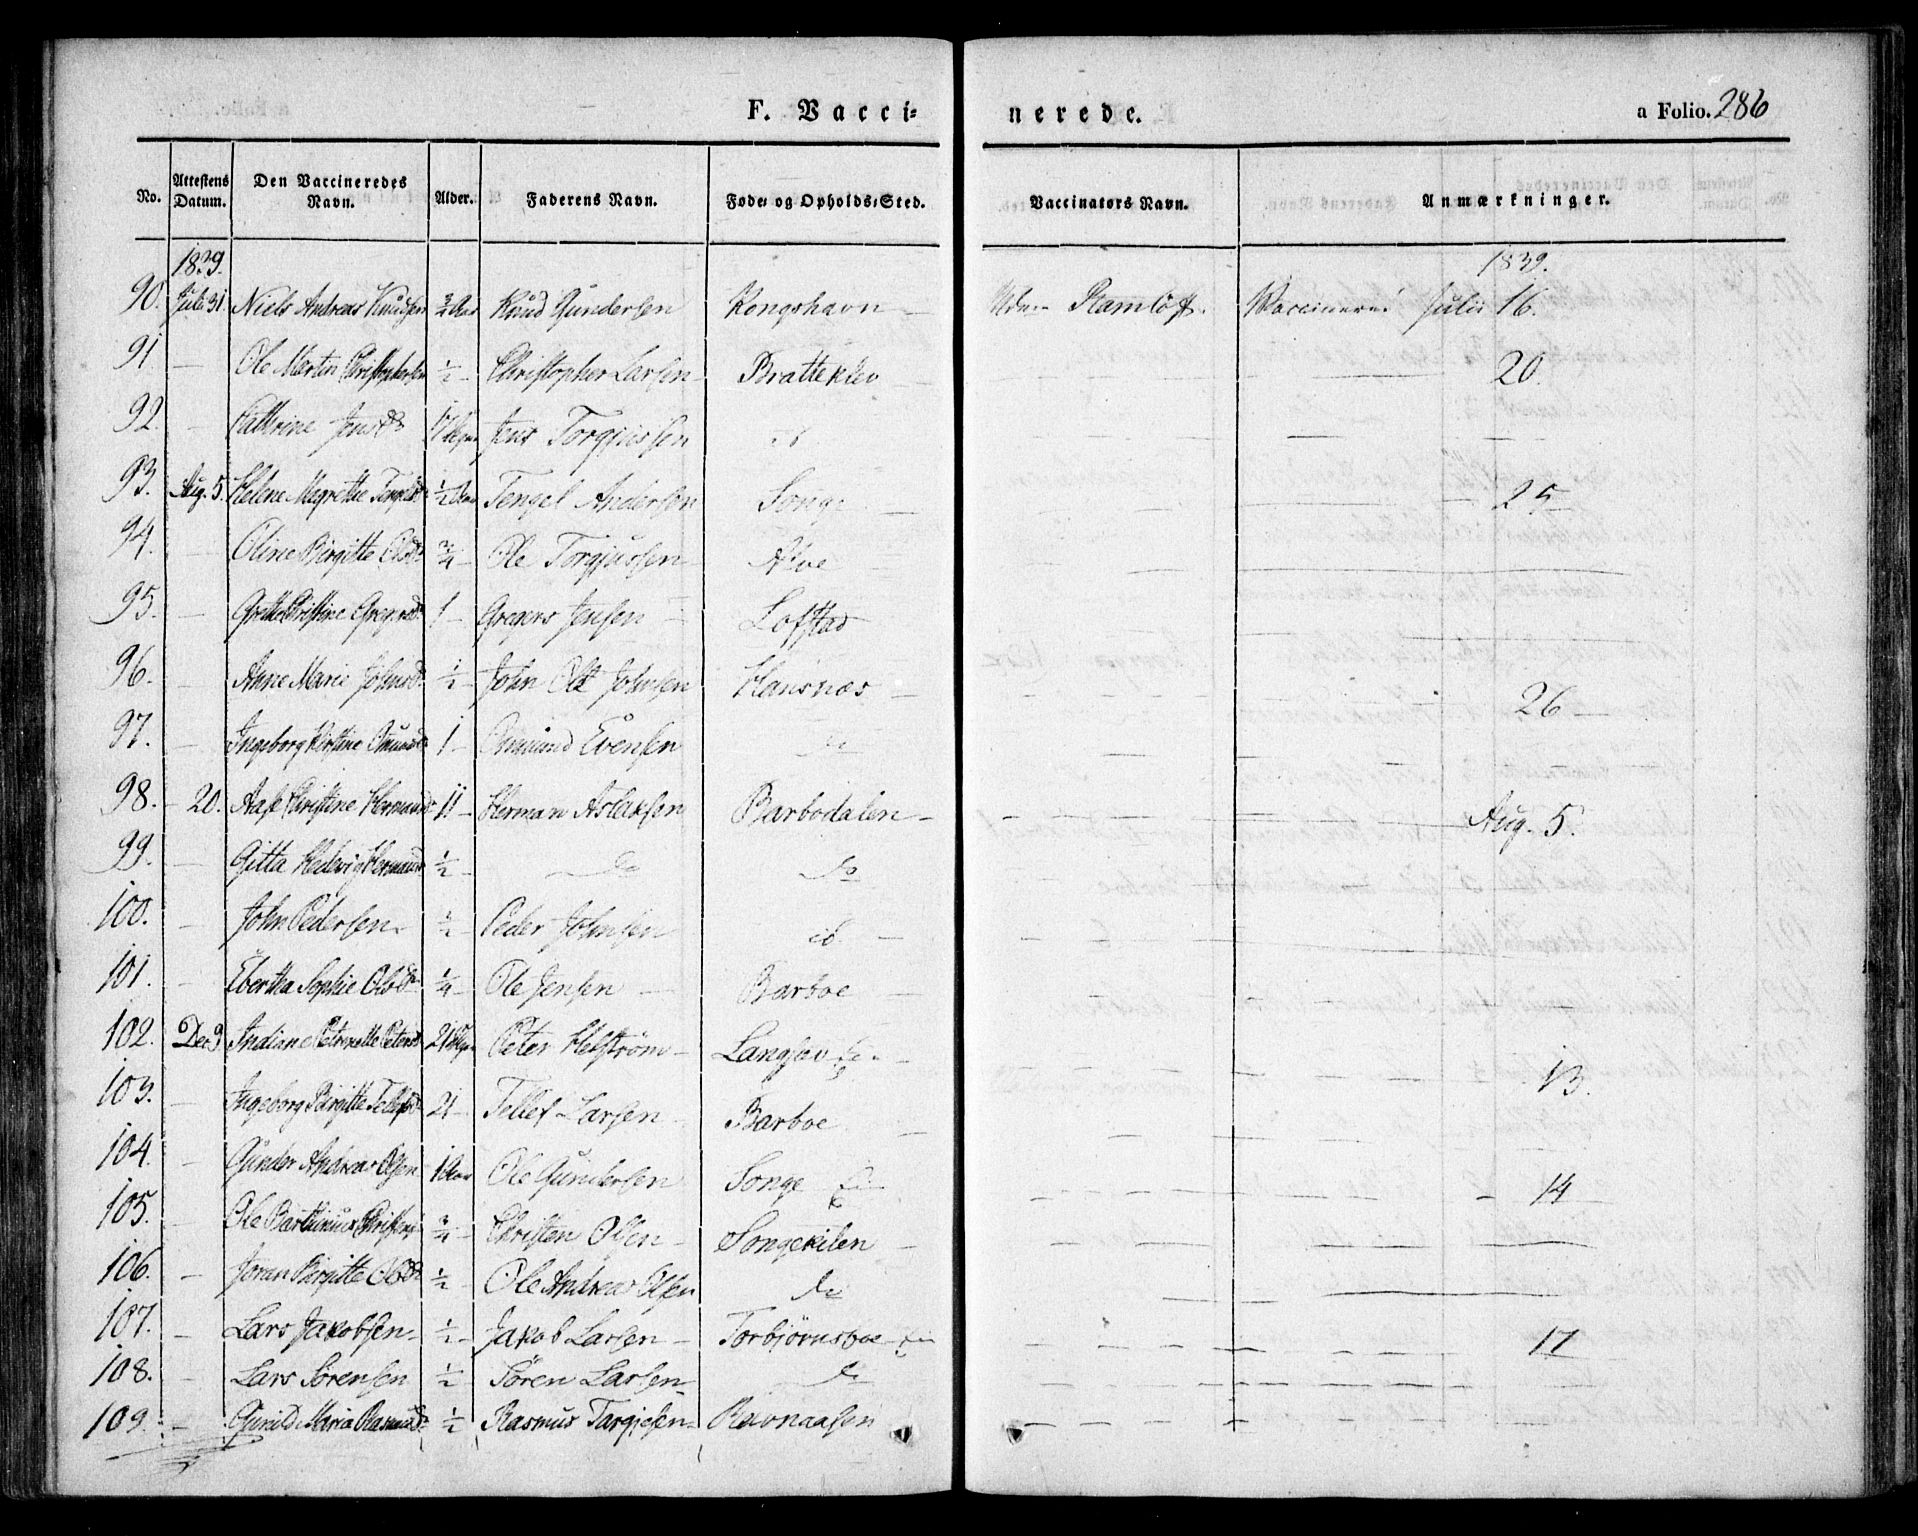 F. Vacci⸗ nerede. a Folio. 286
No. Attestens Datum. Den Vaccineredes Navn. Alder. Faderens Navn. Føde⸗ og Opholds⸗Sted. Vaccinators Navn. Anmærkninger.
1839. 1839.
90. Juli 31. Niels Andreas Knudsen 3/4 Aar Knud Gundersen Kongshavn Ramlöff. Vaccineret Julii 16.
91 — Ole Martin Christophersen 1/2 — Christopher Larsen — Bratteklev — 20.
92. — Cathrine Jensd 17 Jens Torgjussen
93. Aug. 5. Helene Magrethe 1/2 Aar Tengel Andersen Songe — 25
94. — Oline Birgitte Olsd 3/4 Ole Torgjussen — Alve
95. — Grethe Christine 1 — Gregers Jensen Lofstad
96. — Anne Marie Johnsd. 1/2 — John Johnsen Hansnæs — 26 —
97. — Ingeborg Kirstine 1 — Omund Evensen do
98. — 20. Aase Christine 11 — Herman Aslaksen Barbodalen — Aug. 5.
99. — Gitta Hedevig 1/2 — do do
100. — John Pedersen. Peder Johnsen
101. — Sophie Olsd 1/4 — Ole Jensen — Barboe —
102. Petrenelle 21 Peter Helström — Langsæv 13.
103. — Ingeborg Birgitte 21 — Tellef Larsen Barboe
104. — Gunder Andreas Olsen 1 Aar Ole Gundersen Songe — 14
105. — Ole 3/4 — Christen Olsen — Songekilen —
106. — Joran Birgitte Olsd 1/2 — Ole Andreas Olsen do
107. — Lars Jakobsen — 1/2 — Jakob Larsen — Torbjørnsboe 17
108. — Lars Sørensen 1/2 — Søren Larsen do
109. — Gunild Maria 1/2 — Rasmus Targjesen — Ravnaasen